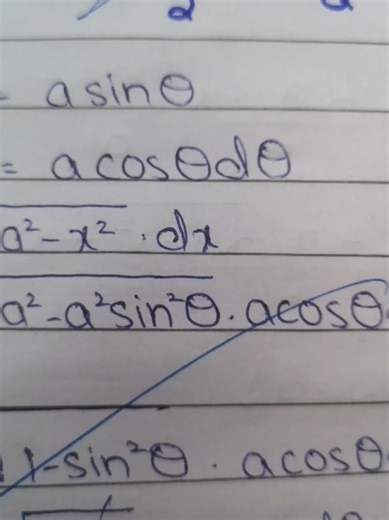 = a sinθ
= a cosθdθ
a² - x² . dx
a² - a²sin²θ . acosθ
1 - sin²θ . acosθ